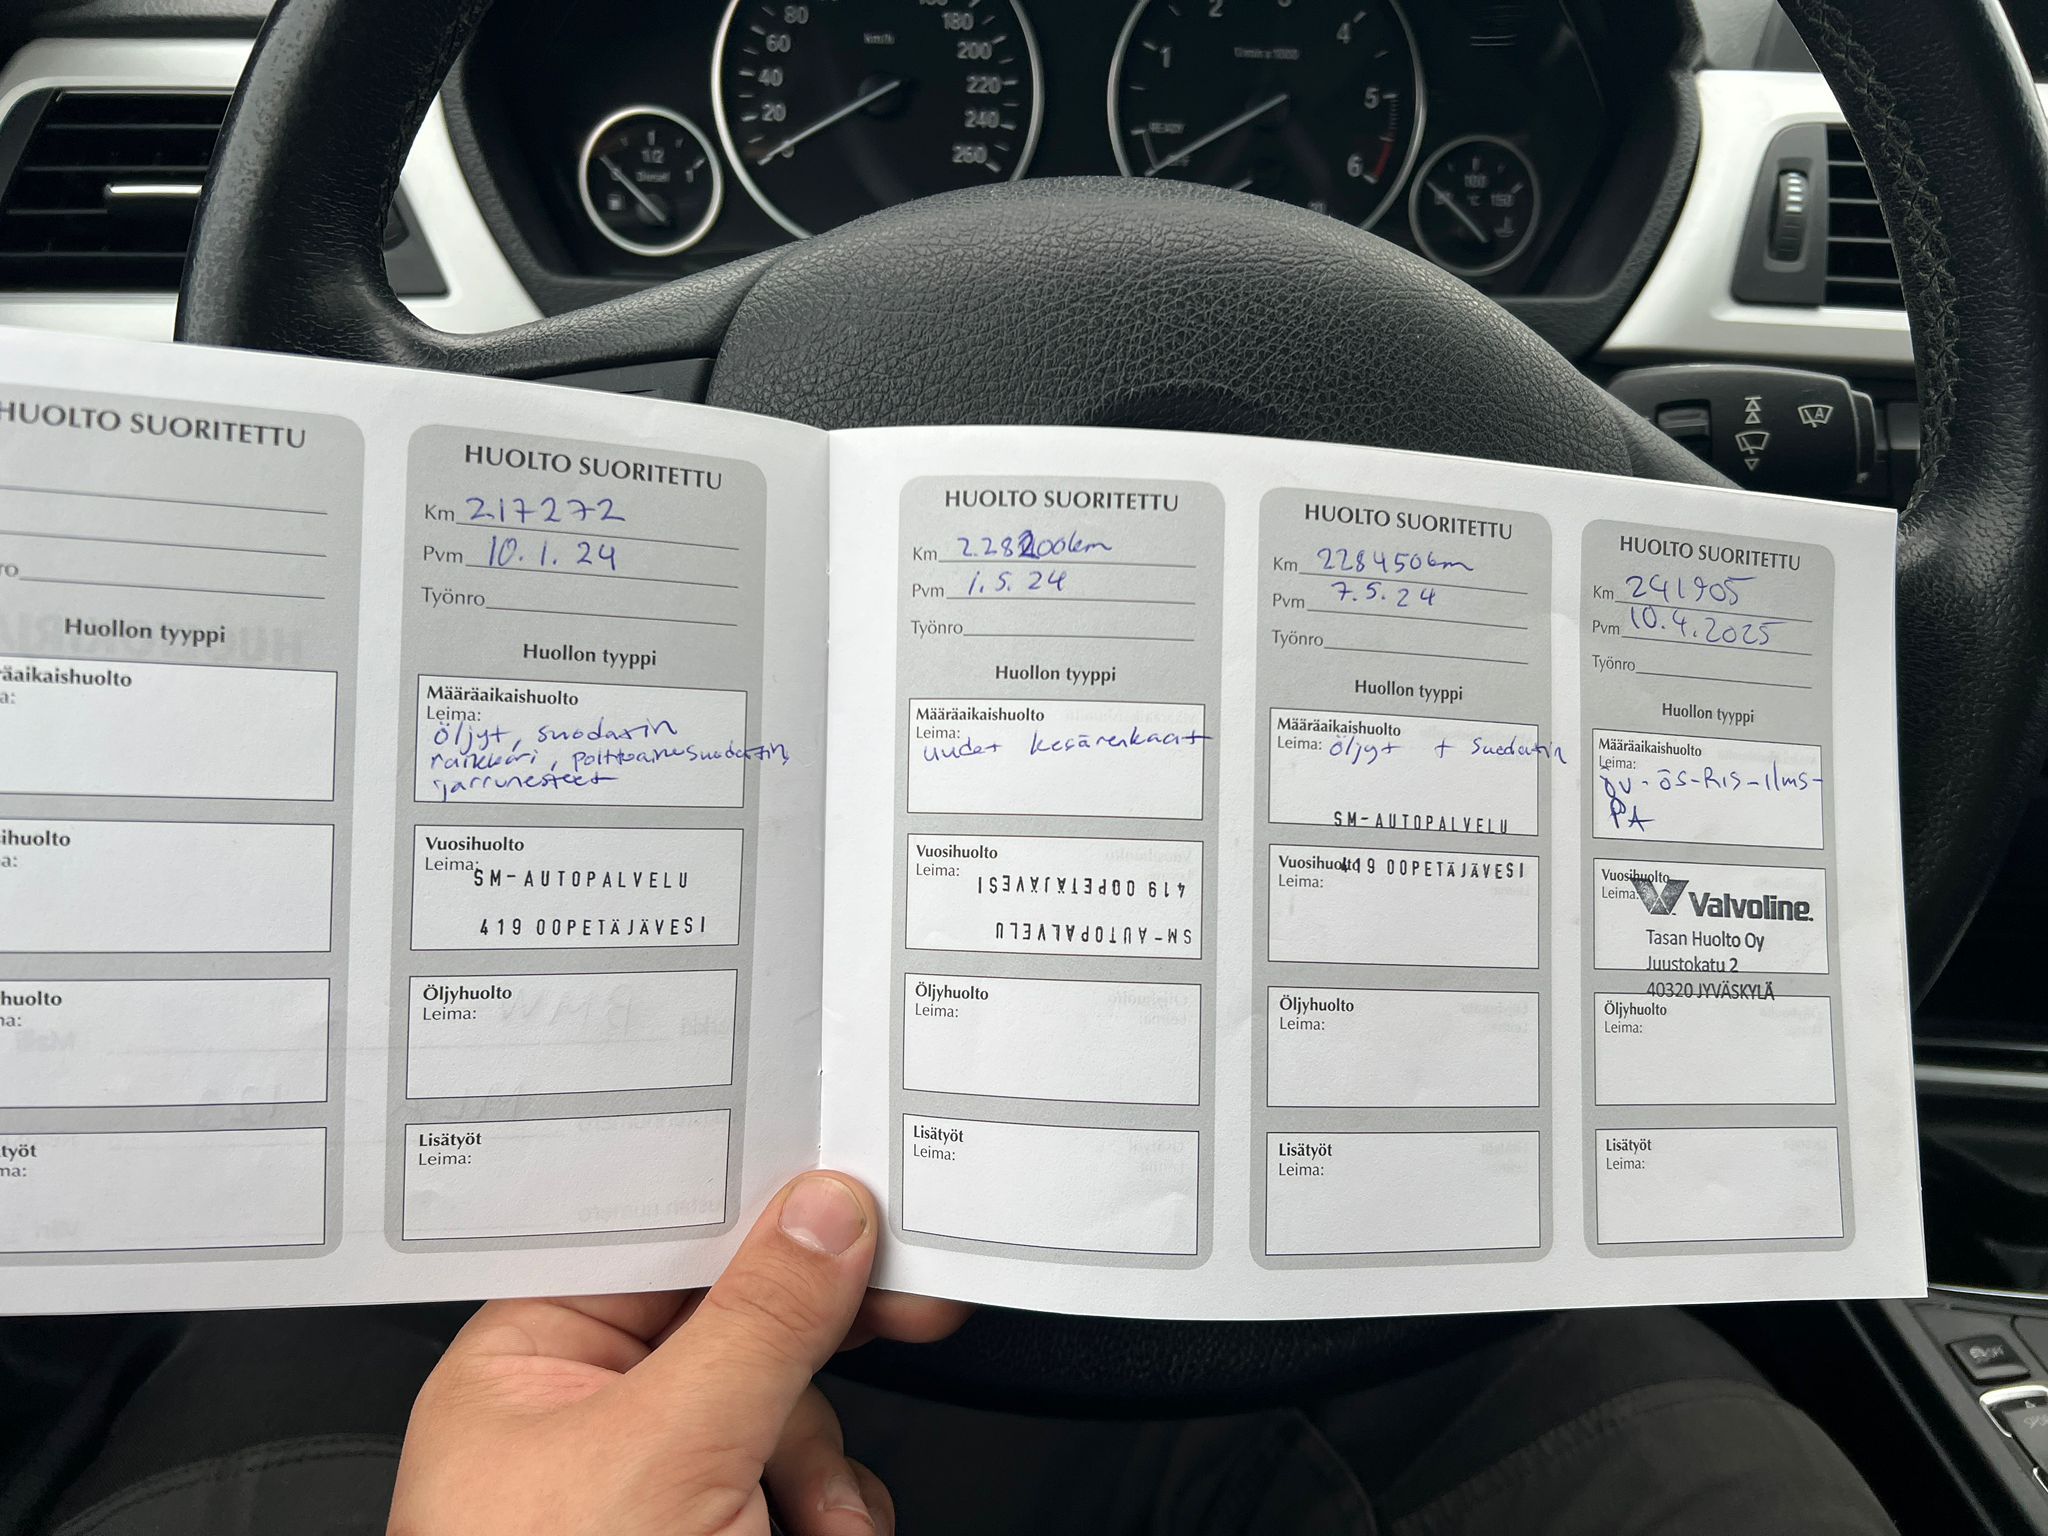 80
60
40
20
km/h
180
200
220
240
260
1/2
Diesel
1
1
2
3
4
5
6
1/min x 1000
READY
OFF
100
°C
150
A
HUOLTO SUORITETTU
Huollon tyyppi
HUOLTO SUORITETTU
Km 217272
Pvm 10.1.24
Työnro
Huollon tyyppi
Määräaikaishuolto
Leima:
öljyt, suodatin
raikkari, polttoainesuodatin,
jarrunesteet
Vuosihuolto
Leima:
SM-AUTOPALVELU
419 00PETÄJÄVESI
Öljyhuolto
Leima:
Lisätyöt
Leima:
HUOLTO SUORITETTU
Km 228200km
Pvm 1.5.24
Työnro
Huollon tyyppi
Määräaikaishuolto
Leima:
uudet kesärenkaat
Vuosihuolto
Leima:
SM-AUTOPALVELU
419 00PETÄJÄVESI
Öljyhuolto
Leima:
Lisätyöt
Leima:
HUOLTO SUORITETTU
Km 228450km
Pvm 7.5.24
Työnro
Huollon tyyppi
Määräaikaishuolto
Leima: öljyt + suodatin
SM-AUTOPALVELU
Vuosihuolto
419 00PETÄJÄVESI
Leima:
Öljyhuolto
Leima:
Lisätyöt
Leima:
HUOLTO SUORITETTU
Km 241905
Pvm 10.4.2025
Työnro
Huollon tyyppi
Määräaikaishuolto
Leima:
öv-ös-RIS-Ilms-
PA
Vuosihuolto
Leima:
Valvoline
Tasan Huolto Oy
Juustokatu 2
40320 JYVÄSKYLÄ
Öljyhuolto
Leima:
Lisätyöt
Leima: